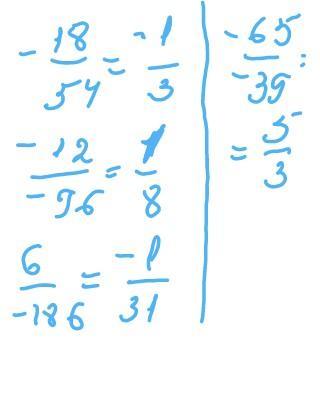 - 18/54 = -1/3
-12/-96 = 1/8
6/-186 = -1/31
-65/-39 =
= 5/3